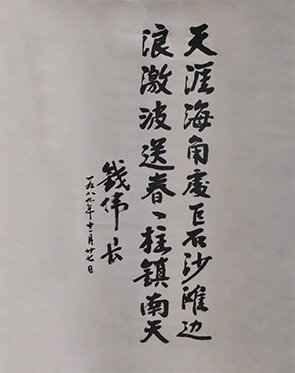 天涯海角处巨石沙滩边
浪激波送春一柱鎮南天
錢伟长
一九八九年十一月廿七日